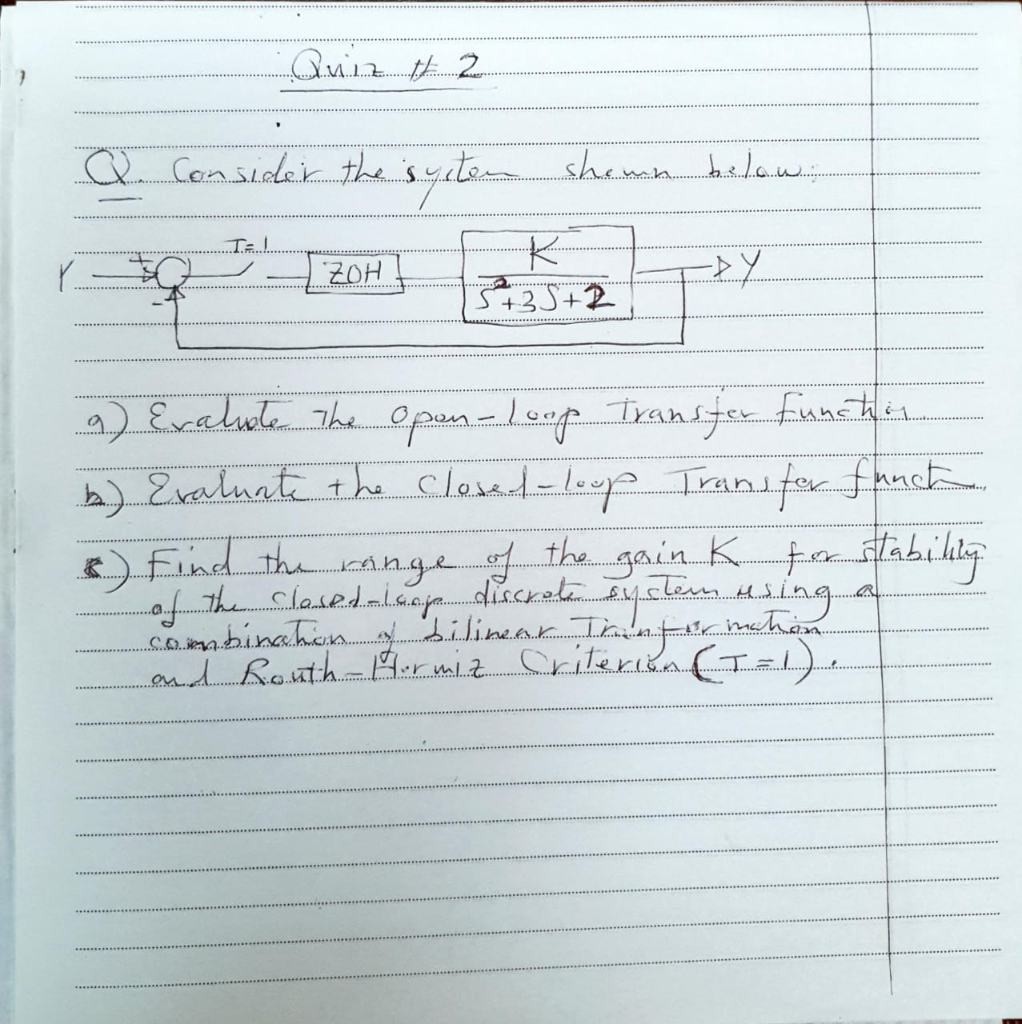 Quiz # 2
Q. Consider the system shown below:
T=1
r + - ZOH K Y
S²+3S+2
a) Evaluate The Open-loop Transfer Function
b) Evaluate the Closed-loop Transfer funct
c) Find the range of the gain K for stability
of the closed-loop discrete system using a
combination of bilinear Trinformation
and Routh-Hormiz Criterion (T=1).